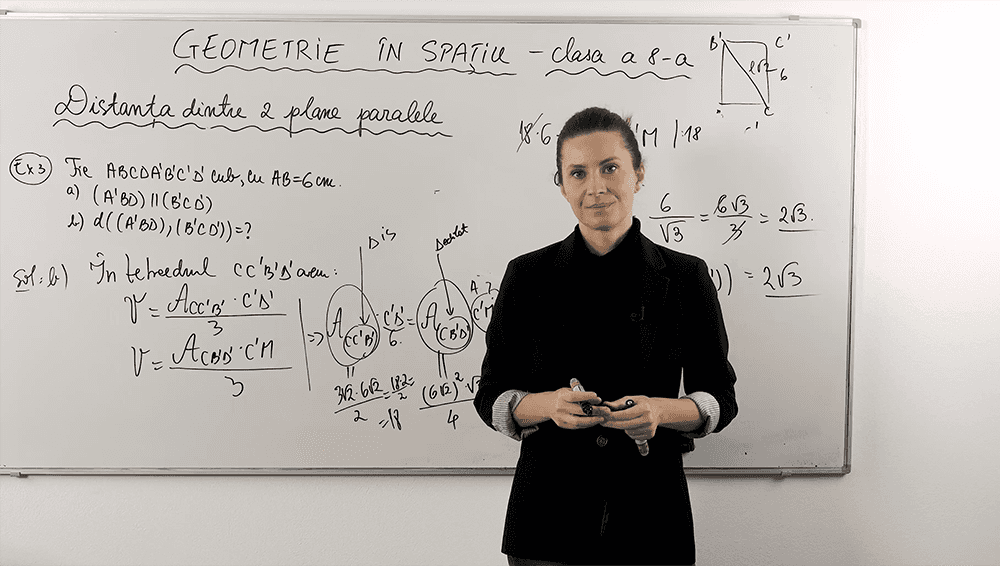 GEOMETRIE ÎN SPAȚIU - clasa a 8-a
Distanța dintre 2 plane paralele
Ex 3 Fie ABCDA'B'C'D' cub, cu AB=6cm.
a) (A'BD)||(B'CD')
b) d((A'BD),(B'CD'))=?
Sol: b) În tetraedrul CC'B'D' avem:
V = A_CC'B' · C'D' / 3
V = A_CB'D' · C'M / 3
=> A CC'B' · C'D' / 6 = A CB'D' · C'M
Δ is
3√2·6√2 / 2 = 18·2 / 2 = 18
(6√2)² · √3 / 4
18·6 'M | :18
6/√3 = 6√3/3 = 2√3.
)) = 2√3
B' C'
6
C